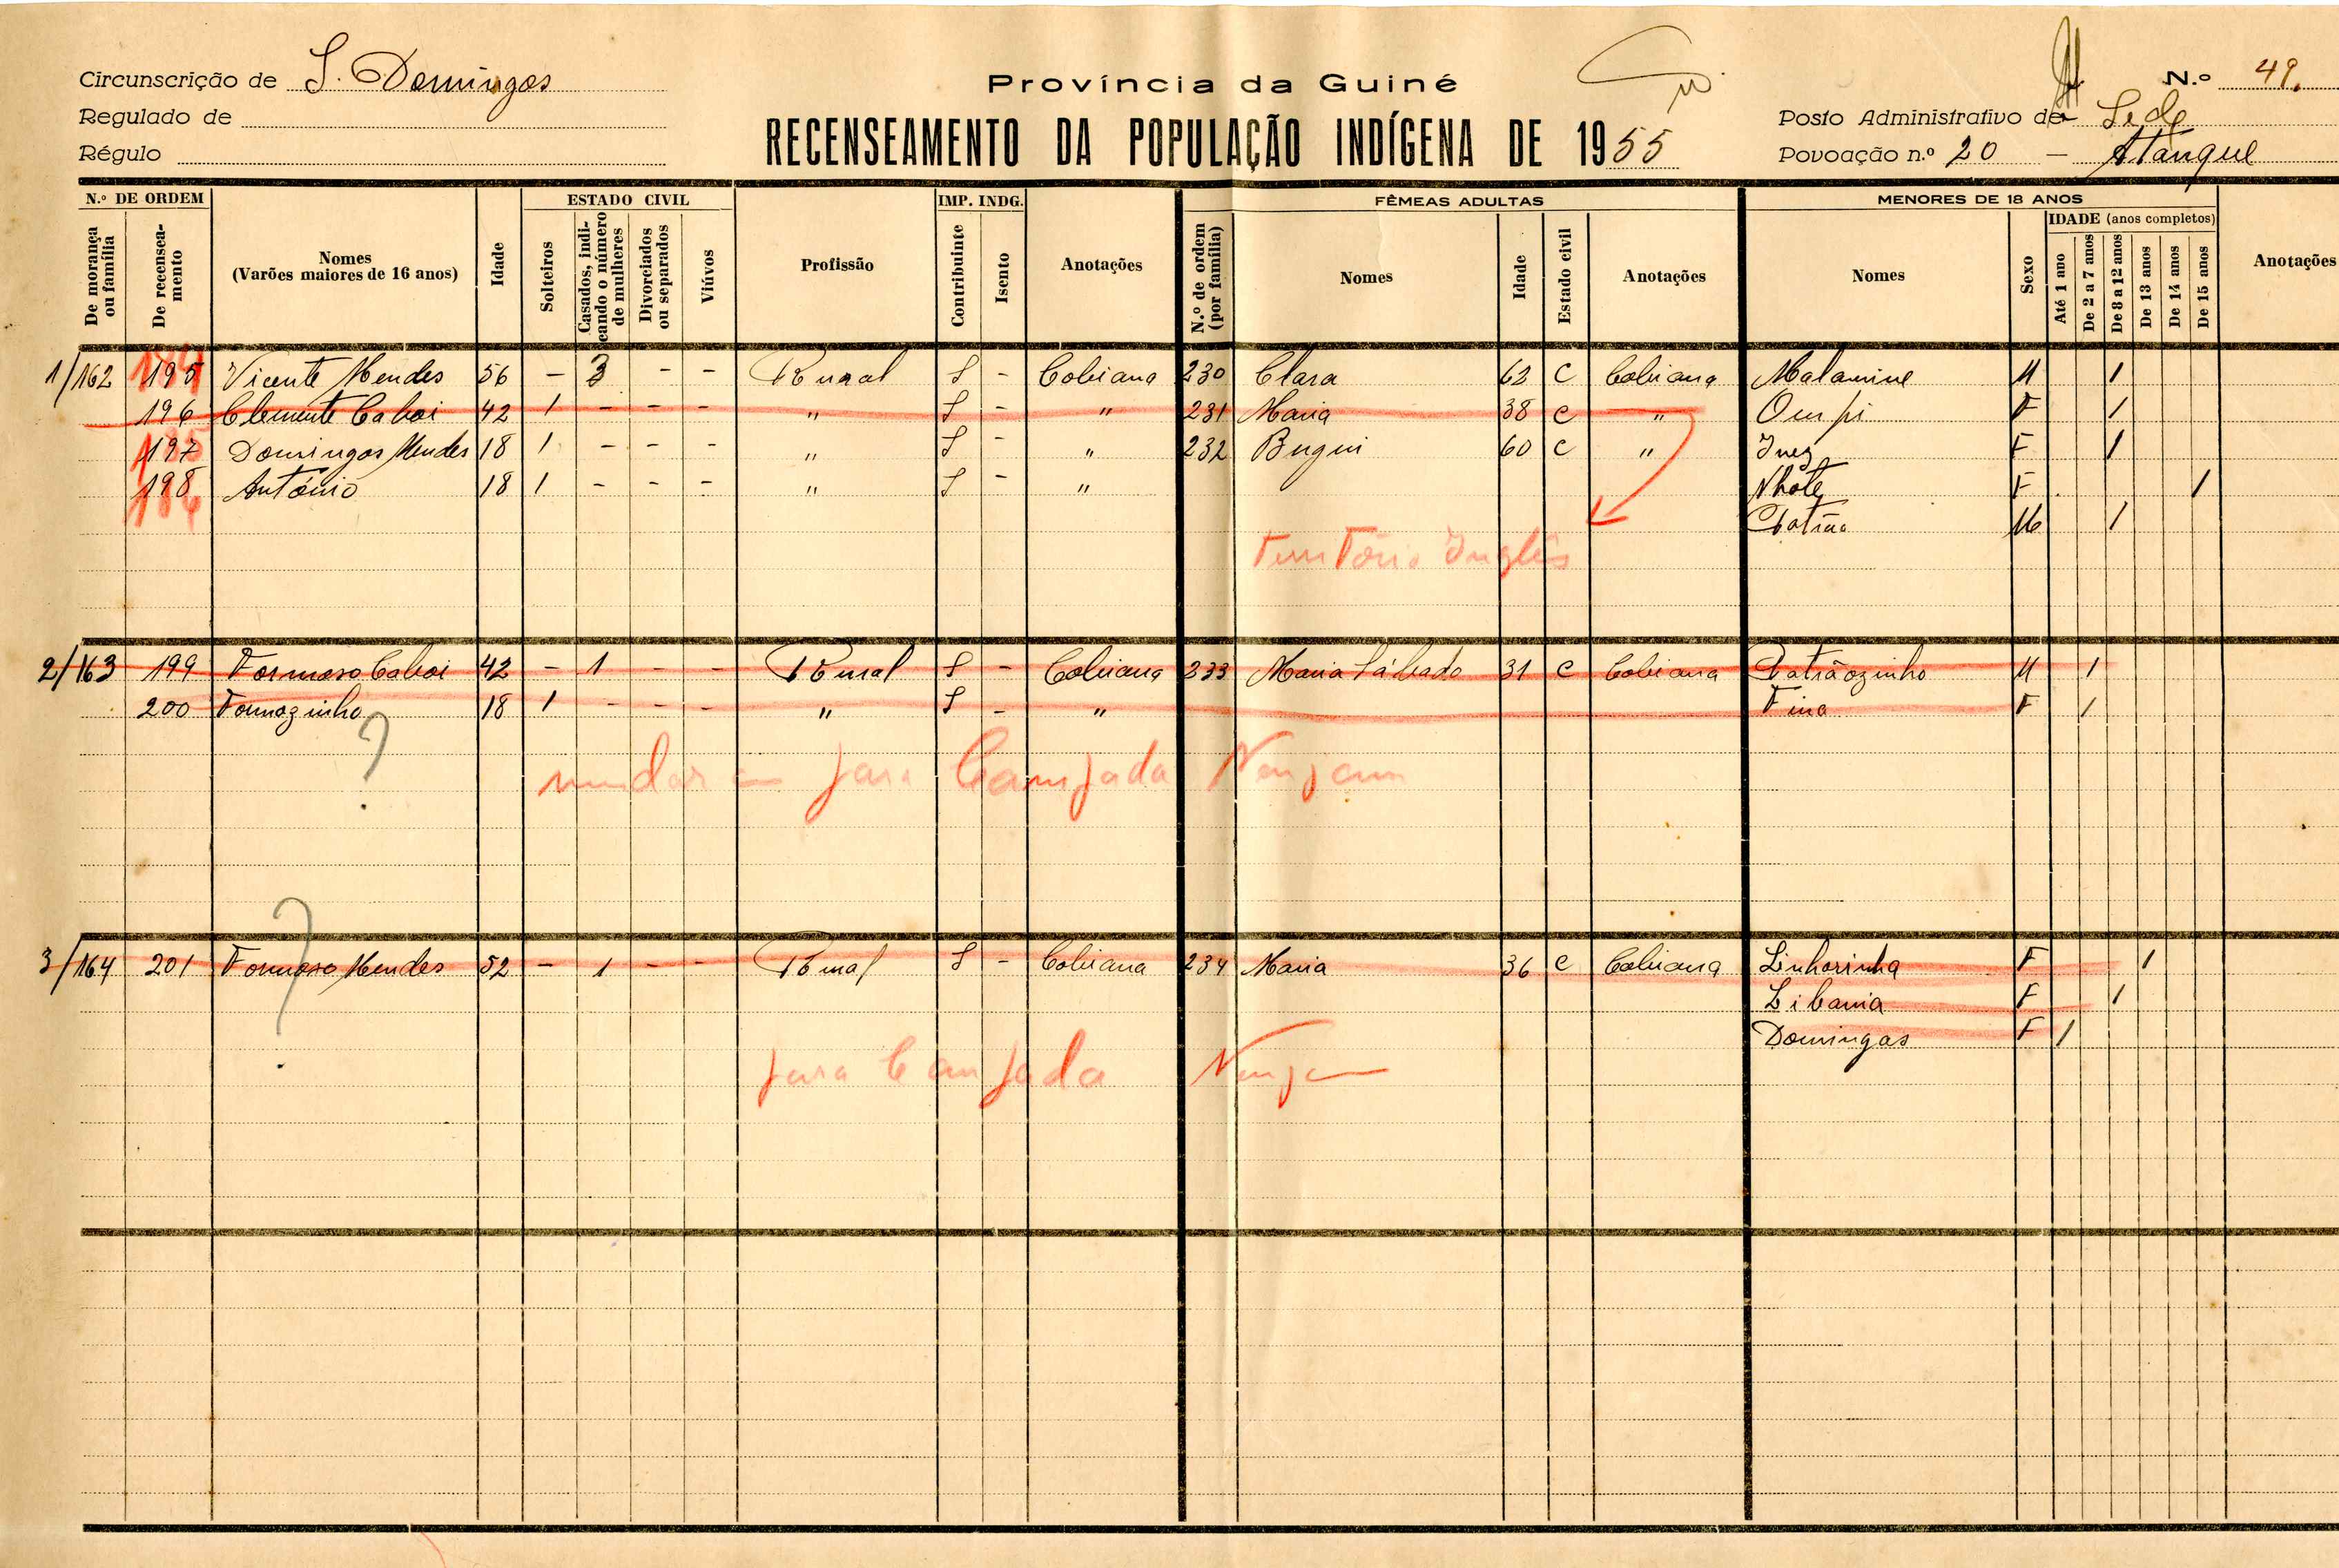 Circunscrição de S. Domingos
Regulado de
Régulo
Província da Guiné
RECENSEAMENTO DA POPULAÇÃO INDÍGENA DE 1955
N.º 49.
Posto Administrativo de Sede
Povoação n.º 20 — Atanque
N.º DE ORDEM
De morança ou família
De recenseamento
Nomes
(Varões maiores de 16 anos)
Idade
ESTADO CIVIL
Solteiros
Casados, indicando o número de mulheres
Divorciados ou separados
Viúvos
Profissão
IMP. INDG.
Contribuinte
Isento
Anotações
FÊMEAS ADULTAS
N.º de ordem (por família)
Nomes
Idade
Estado civil
Anotações
MENORES DE 18 ANOS
Nomes
Sexo
IDADE (anos completos)
Até 1 ano
De 2 a 7 anos
De 8 a 12 anos
De 13 anos
De 14 anos
De 15 anos
Anotações
1/162 195 Vicente Mendes 56 - 3 - - Rural S - Cobiana 230 Clara 62 C Cobiana Malamine M 1
196 Clemente Caboi 42 1 - - - " S - " 231 Maria 38 C " Oumpi F 1
197 Domingos Mendes 18 1 - - - " S - " 232 Bugui 60 C " Inez F 1
198 António 18 1 - - - " S - " Nhote F 1
M 1
Território Inglês
2/163 199 Formoso Caboi 42 - 1 - - Rural S - Cobiana 233 Maria Sábado 31 C Cobiana Patrãozinho M 1
200 Formozinho 18 1 - - - " S - " Fina F 1
?
mudaram para Campada Nenjam
3/164 201 Formoso Mendes 52 - 1 - - Rural S - Cobiana 234 Maria 36 C Cobiana Linharinha F 1
Libania F 1
Domingas F 1
?
para Campada